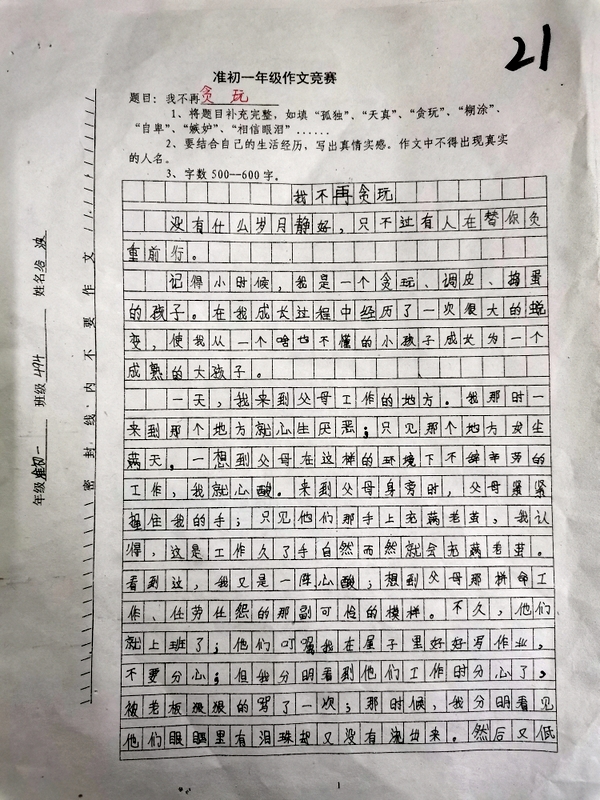 21
准初一年级作文竞赛
题目：我不再贪玩
1、将题目补充完整，如填“孤独”、“天真”、“贪玩”、“糊涂”、
“自卑”、“嫉妒”、“相信眼泪”……
2、要结合自己的生活经历，写出真情实感。作文中不得出现真实
的人名。
3、字数500--600字。
我不再贪玩
没有什么岁月静好，只不过有人在替你负
重前行。
记得小时候，我是一个贪玩、调皮、捣蛋
的孩子。在我成长过程中经历了一次很大的蜕
变，使我从一个啥也不懂的小孩子成长为一个
成熟的大孩子。
一天，我来到父母工作的地方。我那时一
来到那个地方就心生厌恶；只见那个地方灰尘
满天，一想到父母在这样的环境下不辞辛劳的
工作，我就心酸。来到父母身旁时，父母紧紧
握住我的手；只见他们那手上充满老茧，我认
得，这是工作久了手自然而然就会充满老茧。
看到这，我又是一阵心酸；想到父母那拼命工
作、任劳任怨的那副可怜的模样。不久，他们
就上班了；他们叮嘱我在屋子里好好写作业，
不要分心；但我分明看到他们工作时分心了，
被老板狠狠的骂了一次；那时候，我分明看见
他们眼眶里有泪珠却又没有流出来。然后又低
年级准初一 班级494 姓名
密封线内不要作文
1